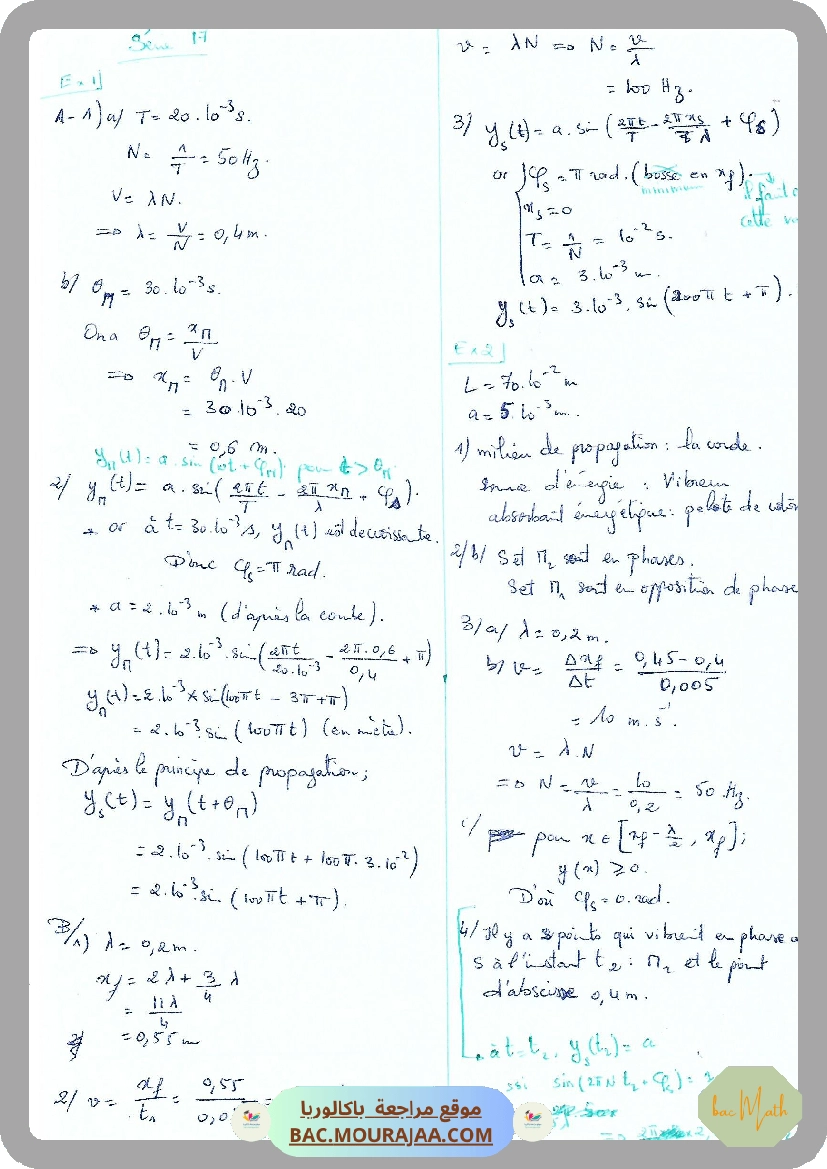 Série 17
Ex 1]
A- 1) a/ T = 20.10⁻³ s.
N = 1/T = 50 Hz.
V = λN.
⇒ λ = V/N = 0,4 m.
b/ θ_M = 30.10⁻³ s.
On a θ_M = x_M/V
⇒ x_M = θ_M . V
= 30.10⁻³ . 20
= 0,6 m.
y_M(t) = a. sin(ωt + φ_M) pour t > θ_M
2/ y_M(t) = a. sin(2πt/T - 2πx_M/λ + φ_s).
* or à t = 30.10⁻³ s, y_M(t) est decroissante.
Donc φ_s = π rad.
* a = 2.10⁻³ m (d'après la courbe).
⇒ y_M(t) = 2.10⁻³. sin(2πt/20.10⁻³ - 2π.0,6/0,4 + π)
y_M(t) = 2.10⁻³ × sin(100πt - 3π + π)
= 2.10⁻³. sin(100πt) (en mètre).
D'après le principe de propagation;
y_s(t) = y_M(t + θ_M)
= 2.10⁻³. sin(100πt + 100π. 3.10⁻²)
= 2.10⁻³. sin(100πt + π).
B/ 1) λ = 0,2 m.
x_f = 2λ + 3/4 λ
= 11λ/4
= 0,55 m
2/ v = x_f/t₁ = 0,55/0,0
v = λN ⇒ N = v/λ
= 100 Hz.
3) y_s(t) = a. sin(2πt/T - 2πx_s/λ + φ_s)
or { φ_s = π rad. (bosse en x_f).
minimum
il faut
cette
x_s = 0
T = 1/N = 10⁻² s.
a = 3.10⁻³ m.
y_s(t) = 3.10⁻³. sin(200πt + π).
Ex 2]
L = 70.10⁻² m
a = 5.10⁻³ m.
1) milieu de propagation : la corde.
source d'énergie : Vibreur
absorbant énergétique : pelote de coton
2/ b/ S et M₂ sont en phases.
S et M₁ sont en opposition de phase
3/ a/ λ = 0,2 m.
b/ v = Δx_f/Δt = 0,45 - 0,4/0,005
= 10 m.s⁻¹.
v = λ.N
⇒ N = v/λ = 10/0,2 = 50 Hz.
c/ pour x ∈ [x_f - λ/2 , x_f];
y(x) ≥ 0.
D'où φ_s = 0 rad.
4/ Il y a 2 points qui vibrent en phase a
S à l'instant t₂ : M₂ et le point
d'abscisse 0,4 m.
à t = t₂, y_s(t₂) = a
ssi sin(2πN t₂ + φ_s) =
موقع مراجعة باكالوريا
BAC.MOURAJAA.COM
bac Math